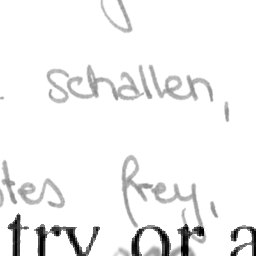 schallen,
frey,
try or a